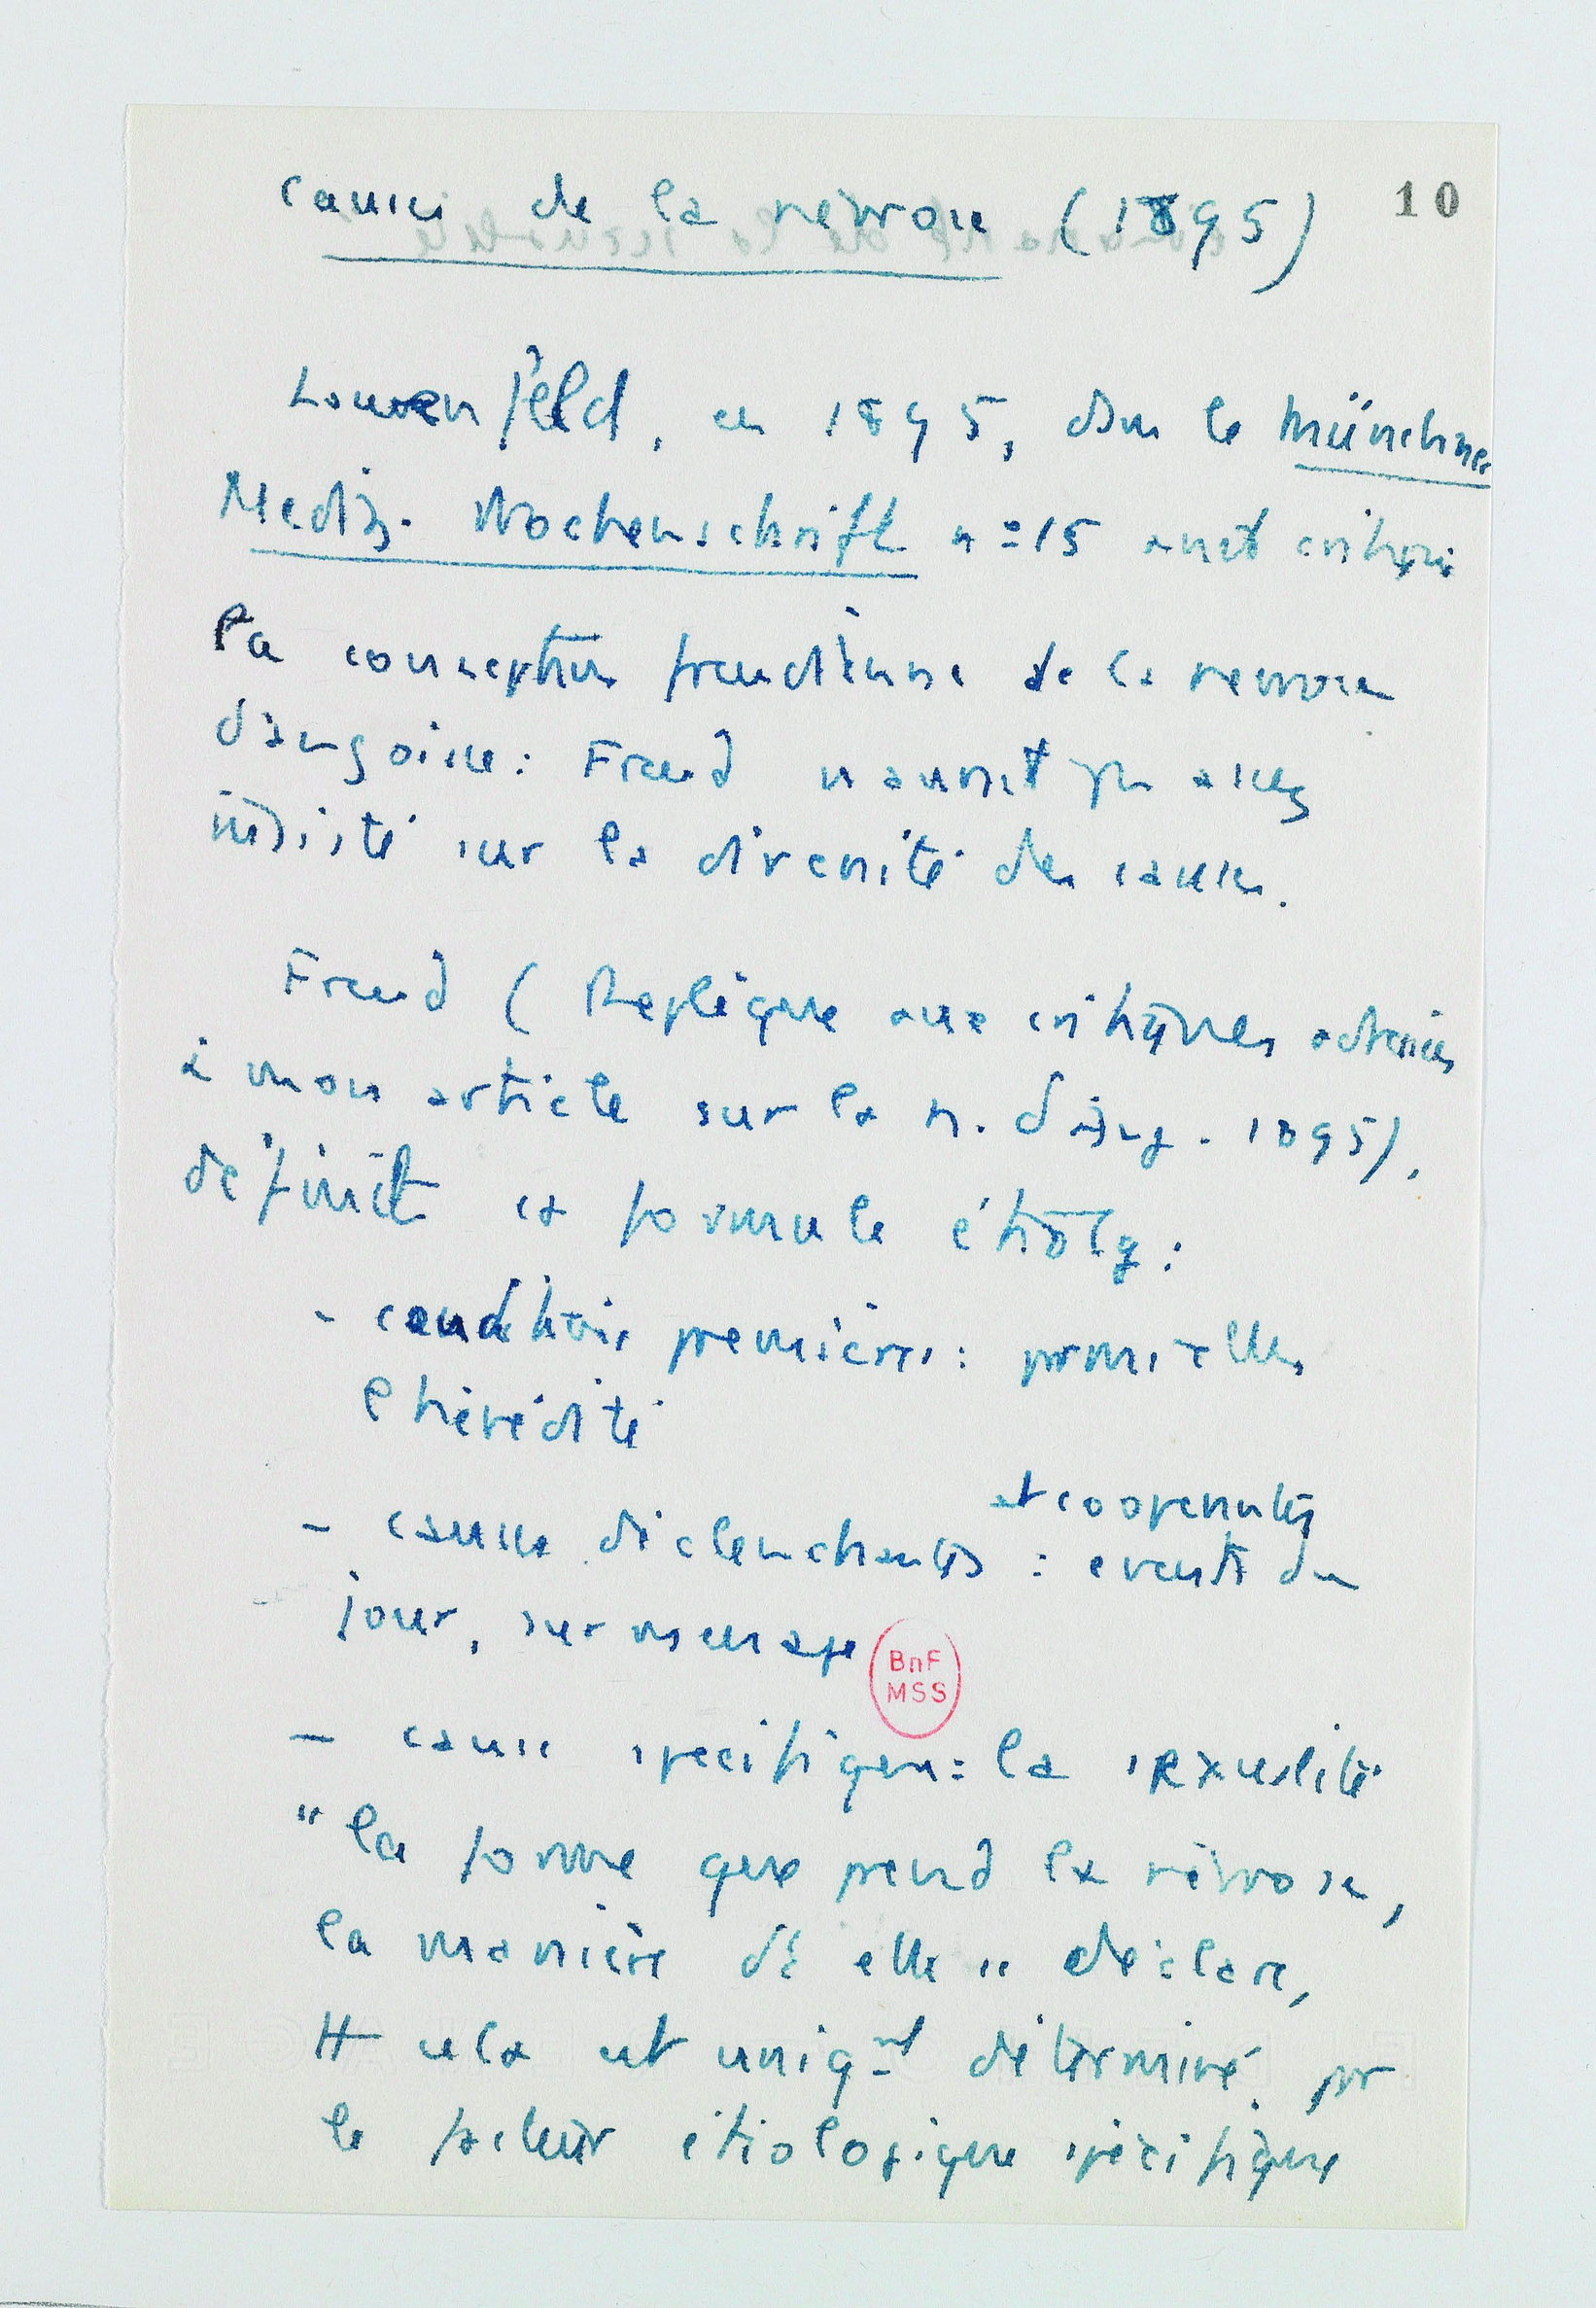 10
Causes de la névrose (1895)
Lowenfeld, en 1895, dans le Münchner
Mediz. Wochenschrift n° 15 avait critiqué
la conception freudienne de la névrose
d'angoisse : Freud n'aurait pas assez
insisté sur la diversité des causes.
Freud (Réplique aux critiques adressées
à mon article sur la n. d'ang. 1895),
définit la formule étiolg :
- conditions premières : parmi elles
l'hérédité
et concurrentes
- causes déclenchantes : events du
jour, surmenage
BnF
MSS
- cause spécifique : la sexualité
"la forme que prend la névrose,
la manière dt elle se déclare,
tt cela est uniqmt déterminé par
le facteur étiologique spécifique